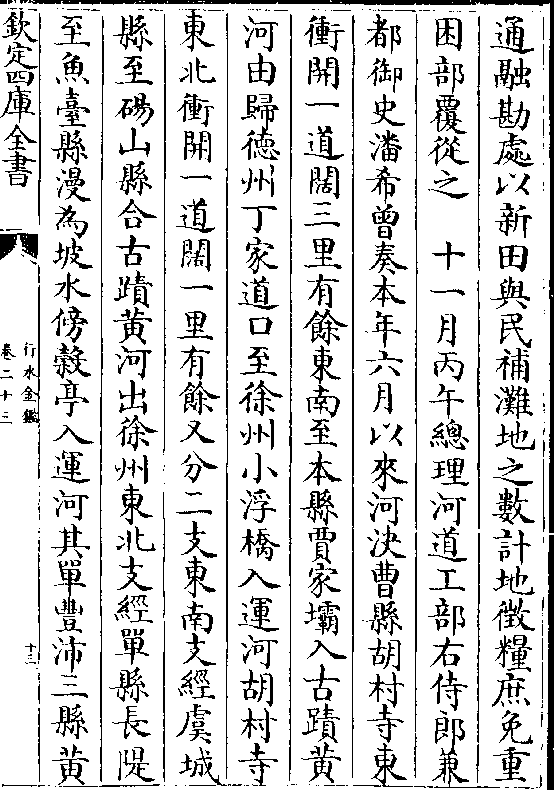 通融勘處以新田與民補灘地之數計地徵糧庶免重
困部覆從之　十一月丙午總理河道工部右侍郎兼
都御史潘希曾奏本年六月以來河決曹縣胡村寺東
衝開一道闊三里有餘東南至本縣賈家壩入古蹟黃
河由歸德州丁家道口至徐州小浮橋入運河胡村寺
東北衝開一道闊一里有餘又分二支東南支經虞城
縣至碭山縣合古蹟黃河出徐州東北支經單縣長隄
至魚臺縣漫為坡水傍穀亭入運河其單豐沛三縣黃
欽定四庫全書
行水金鑑
卷二十三
十三